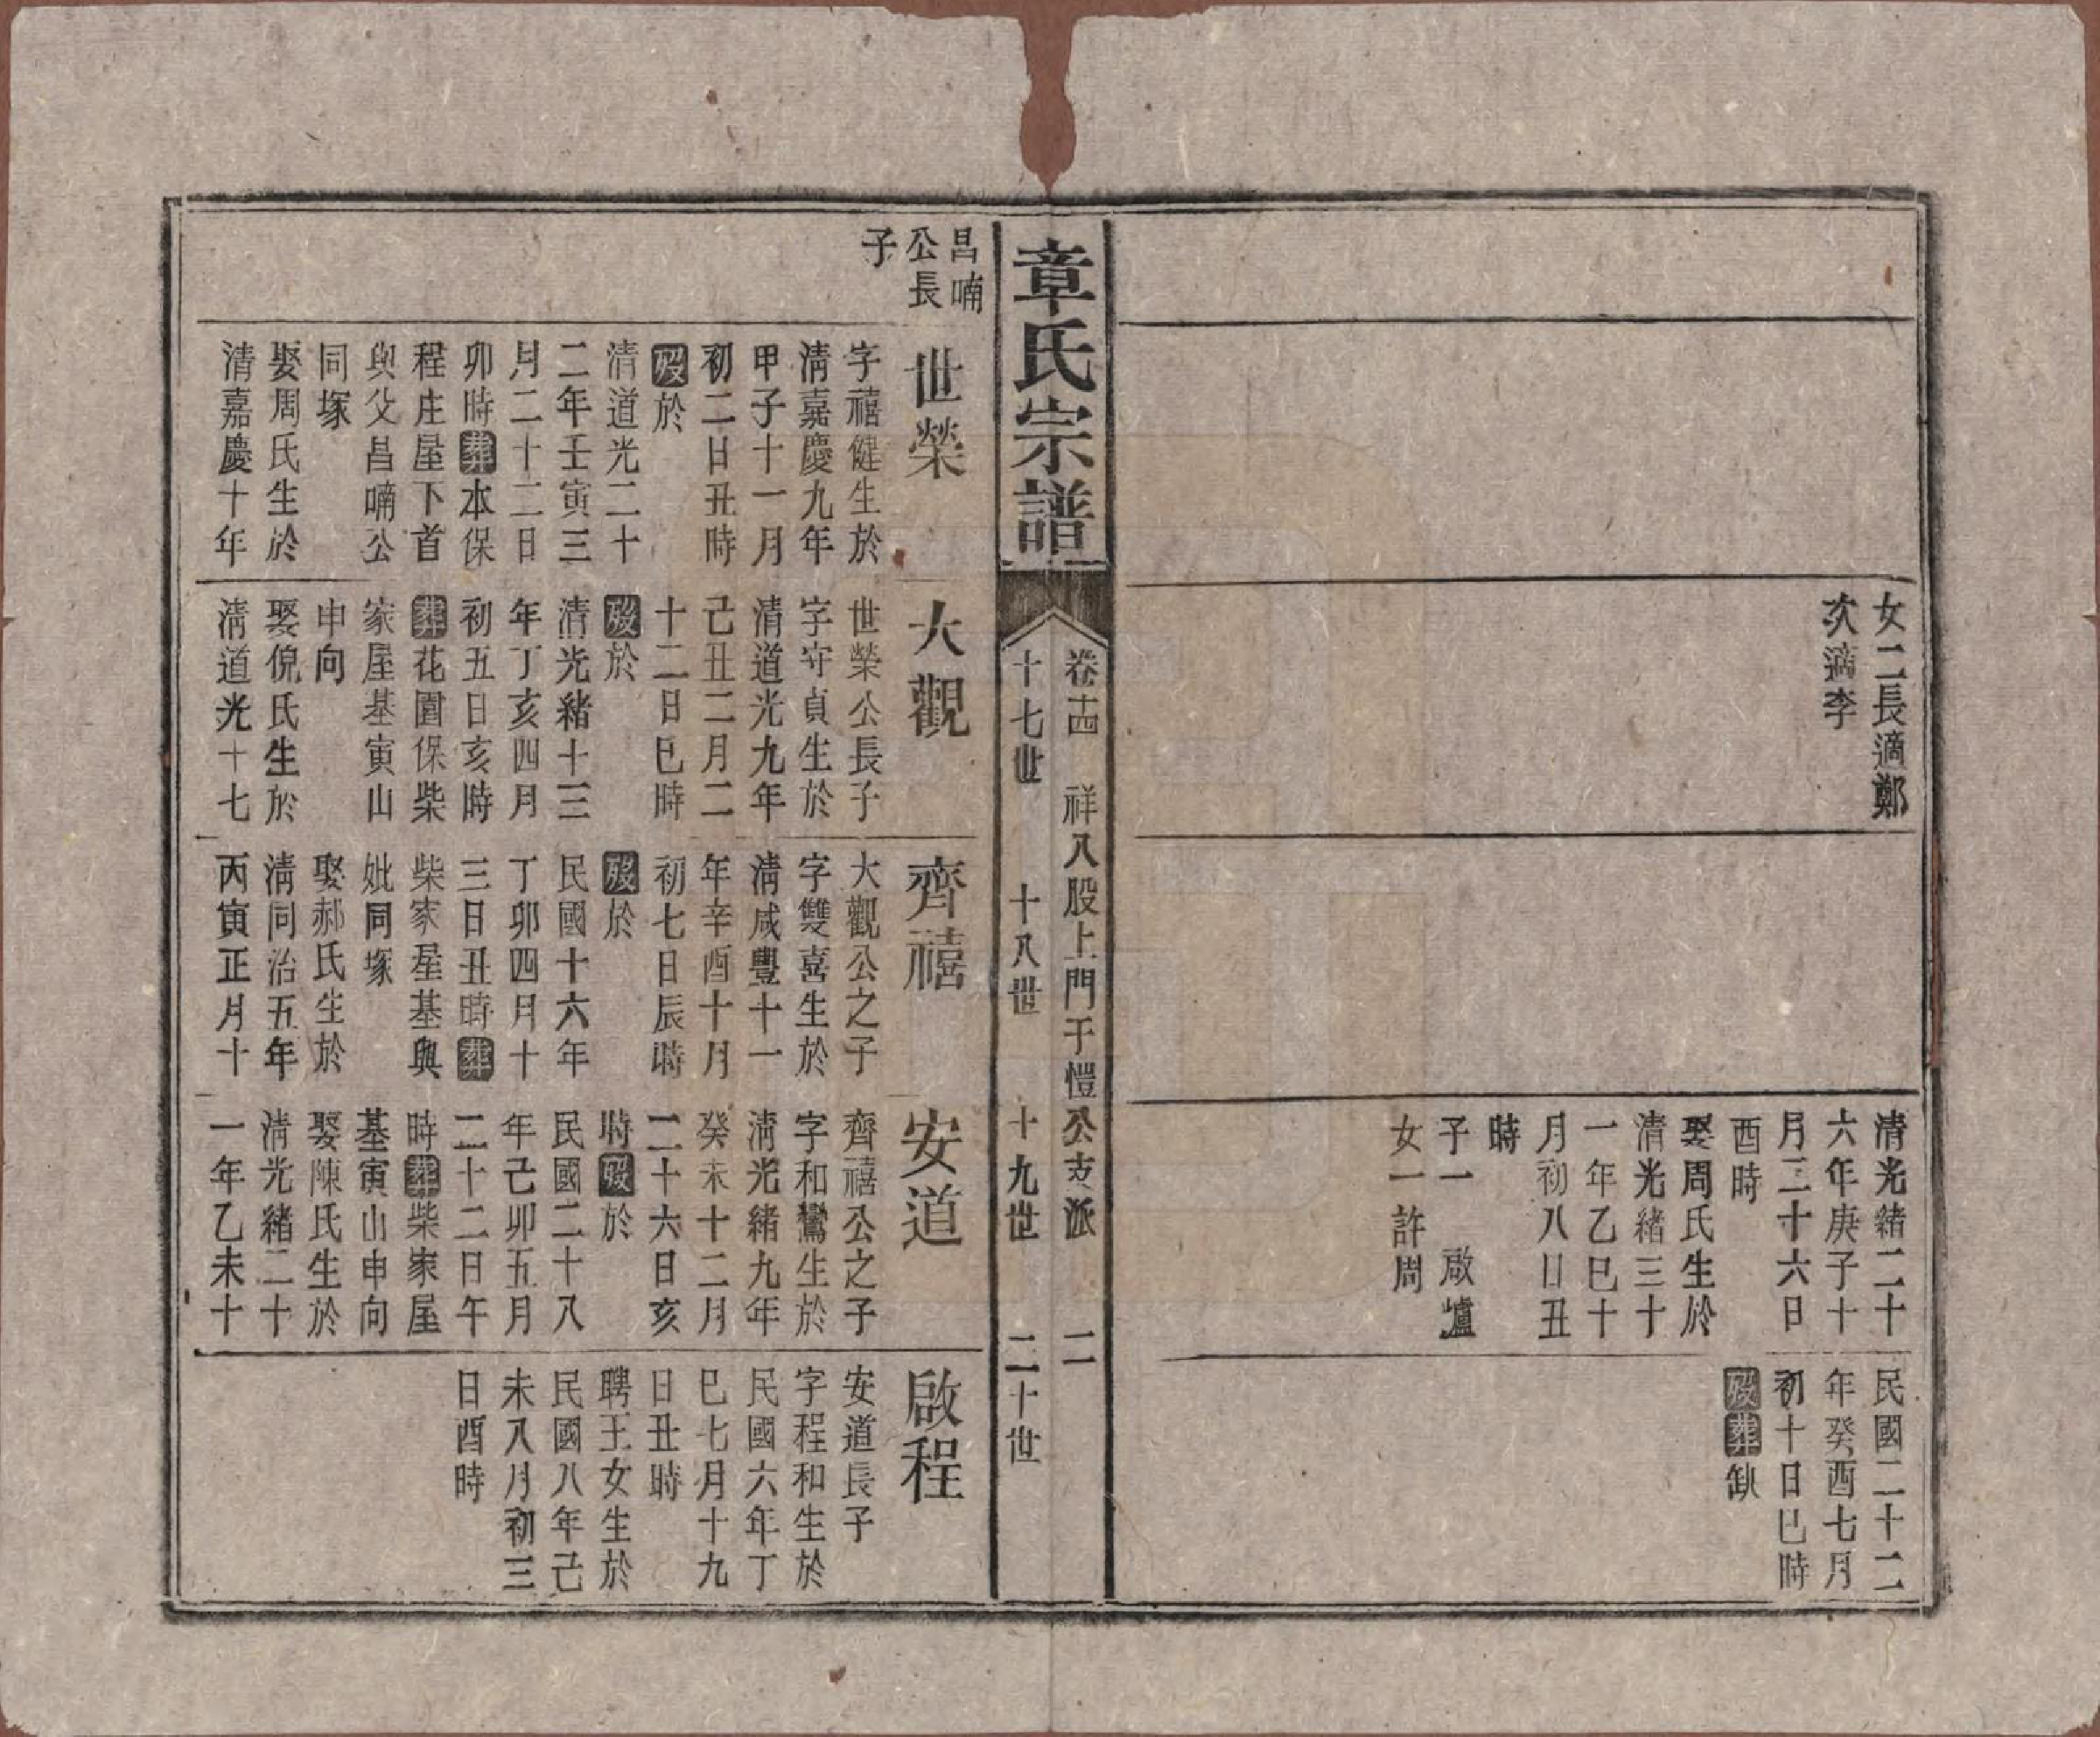 女二長適鄭
次適李
清光緒二十
六年庚子十
月二十六日
酉時
娶周氏生於
清光緒三十
一年乙巳十
月初八日丑
時
子一　啟爐
女一許周
民國二十二
年癸酉七月
初十日巳時
歿葬缺
章氏宗譜
卷十四　祥八股上門于愷公支派　二
十七世　十八世　十九世　二十世
昌喃
公長
子
世榮
字禧健生於
清嘉慶九年
甲子十一月
初二日丑時
歿於
清道光二十
二年壬寅三
月二十二日
卯時葬本保
程庄屋下首
與父昌喃公
同塚
娶周氏生於
清嘉慶十年
大觀
世榮公長子
字守貞生於
清道光九年
己丑二月二
十二日巳時
歿於
清光緒十三
年丁亥四月
初五日亥時
葬花園保柴
家屋基寅山
申向
娶倪氏生於
清道光十七
齊禧
大觀公之子
字雙喜生於
清咸豐十一
年辛酉十月
初七日辰時
歿於
民國十六年
丁卯四月十
三日丑時葬
柴家屋基與
妣同塚
娶郝氏生於
清同治五年
丙寅正月十
安道
齊禧公之子
字和鸞生於
清光緒九年
癸未十二月
二十六日亥
時歿於
民國二十八
年己卯五月
二十二日午
時葬柴家屋
基寅山申向
娶陳氏生於
清光緒二十
一年乙未十
啟程
安道長子
字程和生於
民國六年丁
巳七月十九
日丑時
聘王女生於
民國八年己
未八月初三
日酉時